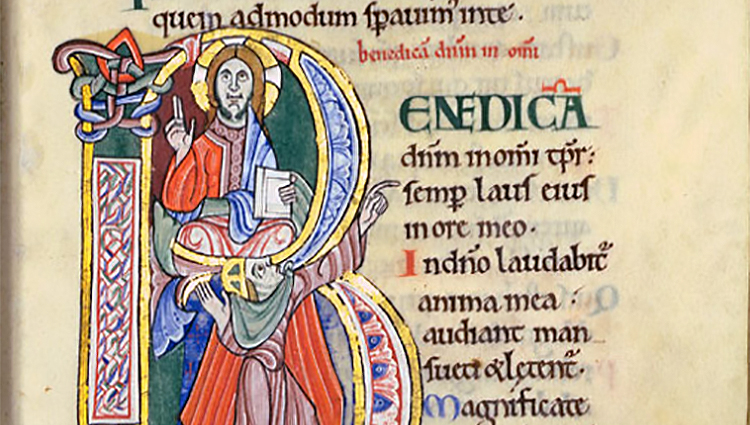 quem admodum ſpauim᾽ inte .
benedicā dn̄m in om̄i
BENEDICĀ
dn̄m in om̄i tp̄r:
ſemꝑ lauſ eiuſ
in ore meo.
In dn̄o laudabit᷑
anima mea :
audiant man
ſueti & lętent᷑.
Magnificate